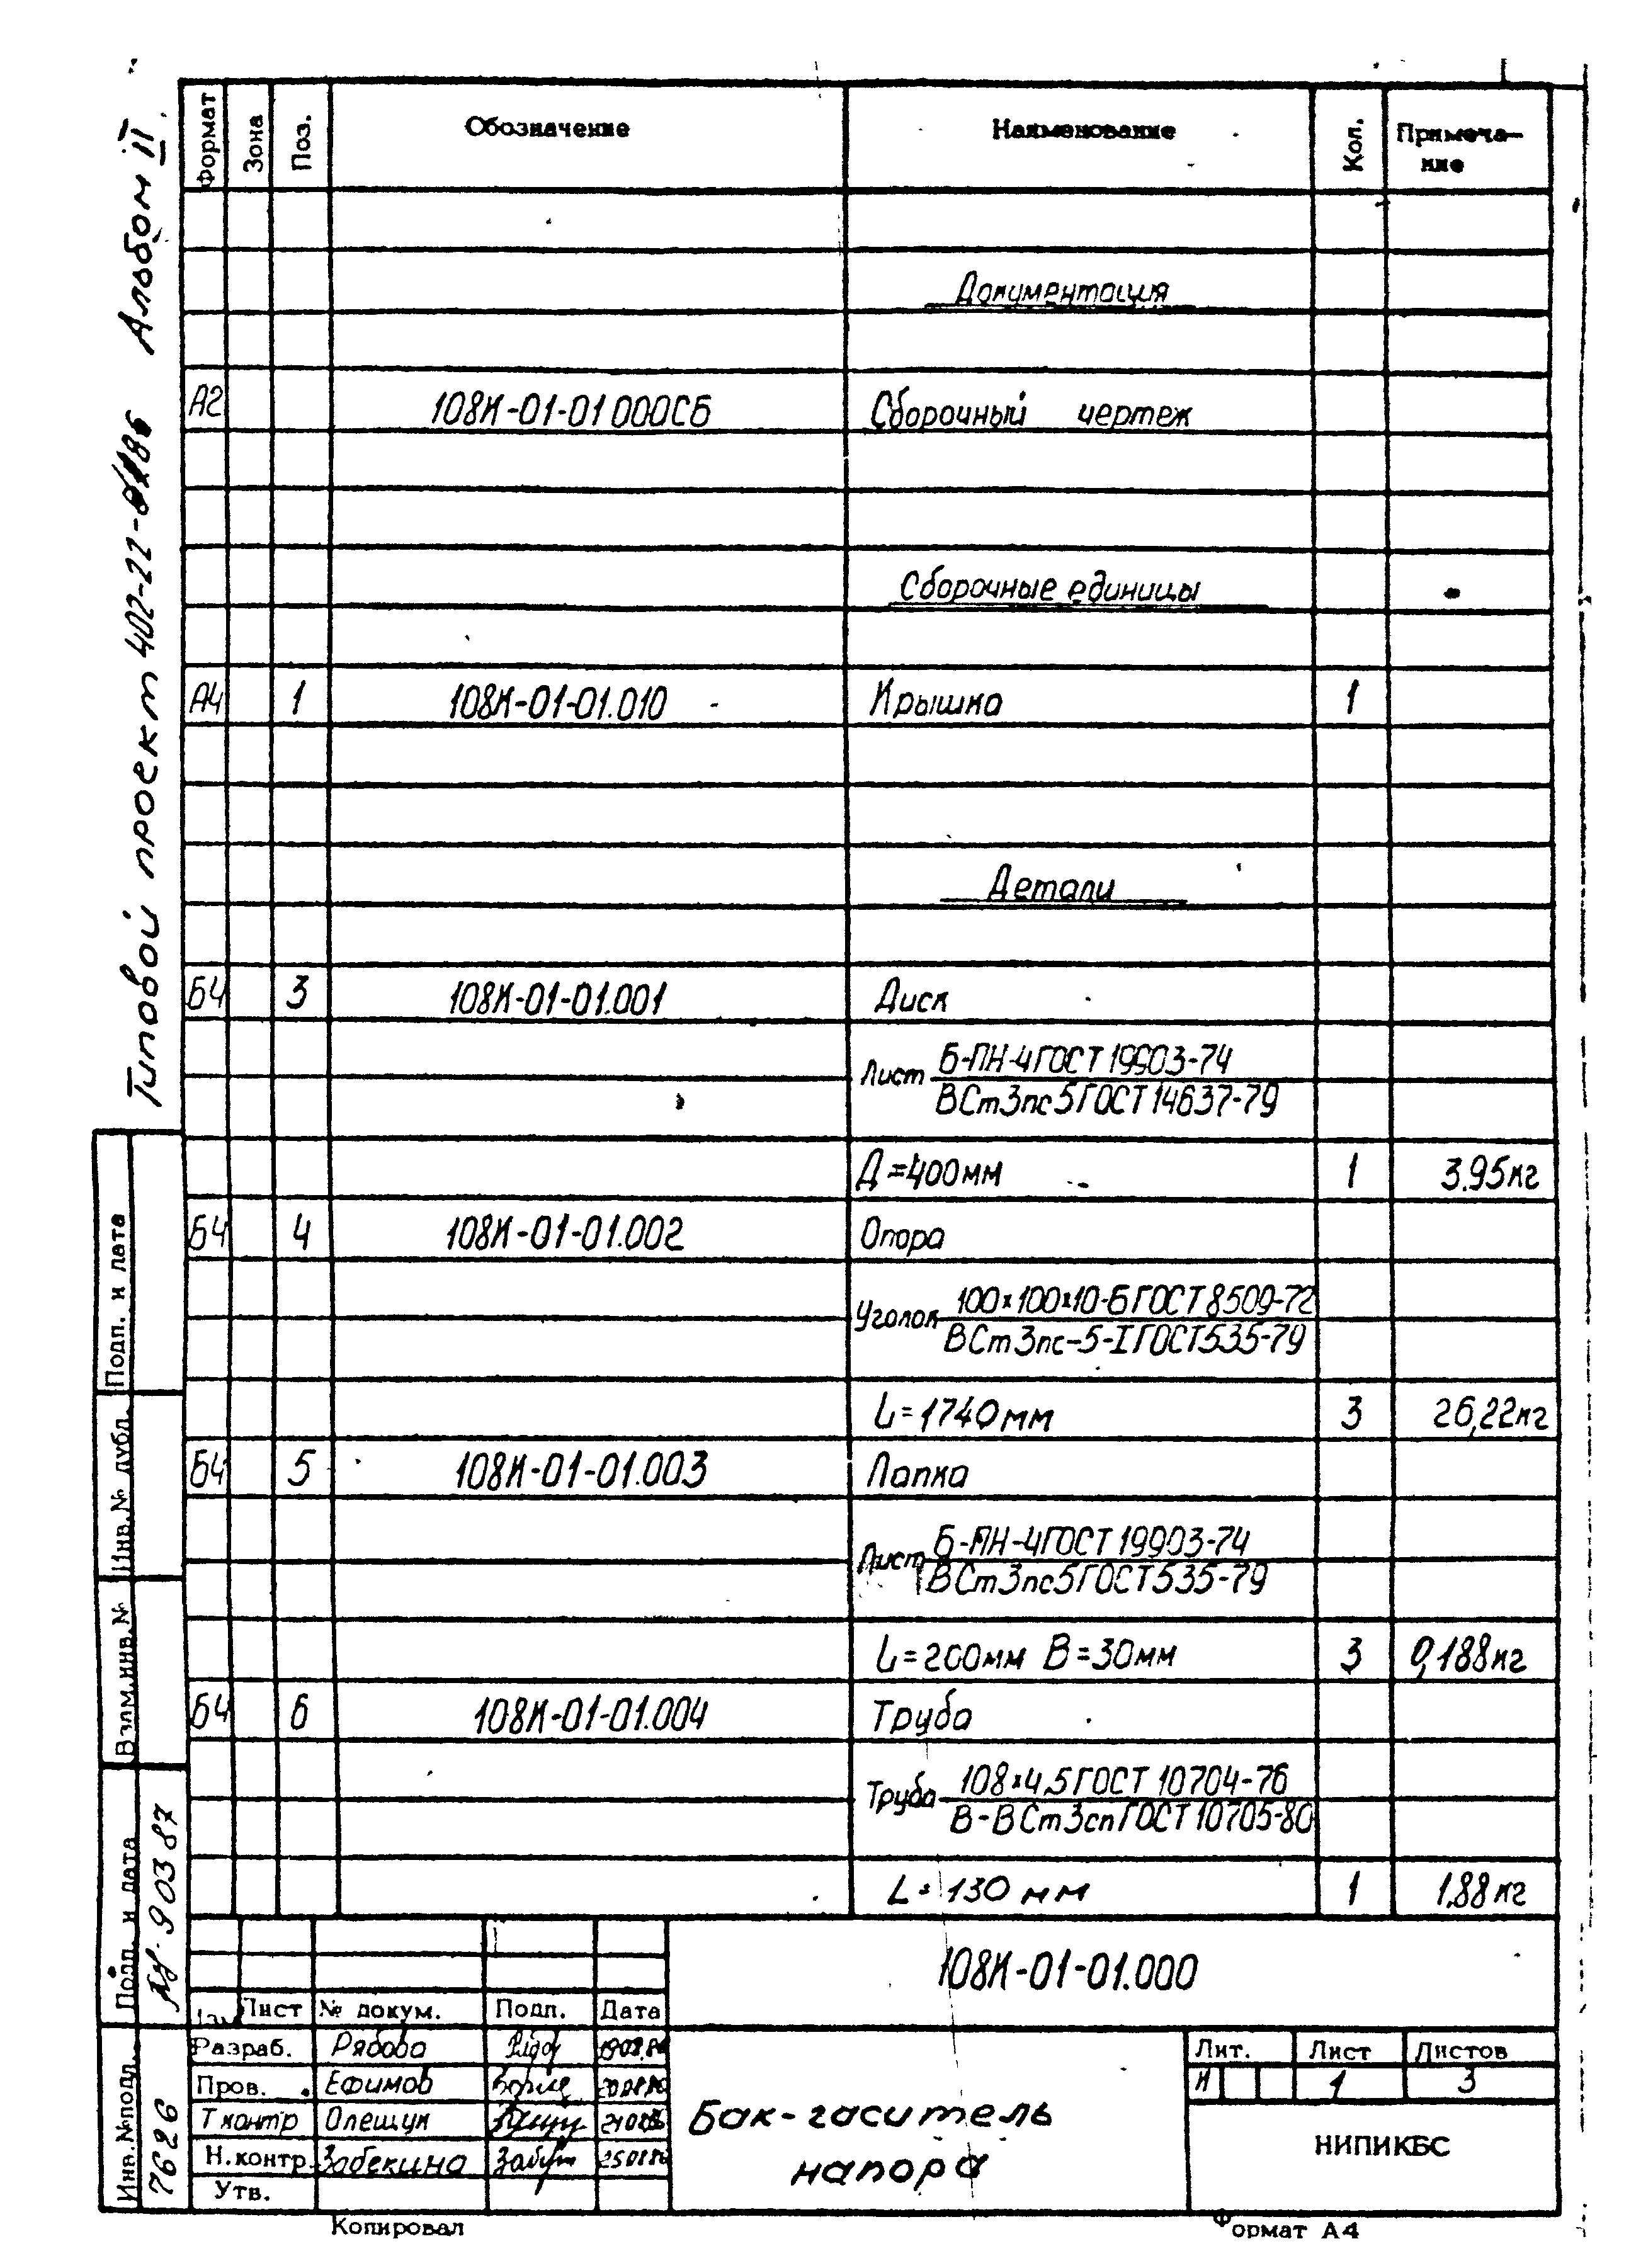 Типовой проект 402-22- Альбом II
Формат Зона Поз. Обозначение Наименование Кол. Примеча-
ние
Документация
А2 108К-01-01000СБ Сборочный чертеж
Сборочные единицы
А4 1 108К-01-01.010 Крышка 1
Детали
Б4 3 108К-01-01.001 Диск
Б-ПН-4 ГОСТ 19903-74
Лист
ВСт3пс5 ГОСТ 14637-79
Д=400мм 1 3.95кг
Б4 4 108К-01-01.002 Опора
100×100×10-Б ГОСТ 8509-72
Уголок
ВСт3пс-5-I ГОСТ 535-79
L=1740мм 3 26,22кг
Б4 5 108К-01-01.003 Лапка
Б-ПН-4 ГОСТ 19903-74
Лист
ВСт3пс5 ГОСТ 535-79
L=200мм В=30мм 3 0,188кг
Б4 6 108К-01-01.004 Труба
108×4,5 ГОСТ 10704-76
Труба
В-ВСт3сп ГОСТ 10705-80
L=130 мм 1 1,88кг
Подп. и дата
Инв.№ дубл.
Взам.инв.№
Подп. и дата
9.03 87
Инв.№подл.
7626
108К-01-01.000
Изм Лист № докум. Подп. Дата
Разраб. Рябова
Пров. Ефимов
Т контр Олещук
Н.контр. Забекина
Утв.
Бак-гаситель
напора
Лит. Лист Листов
И 1 3
НИПИКБС
Копировал Формат А4